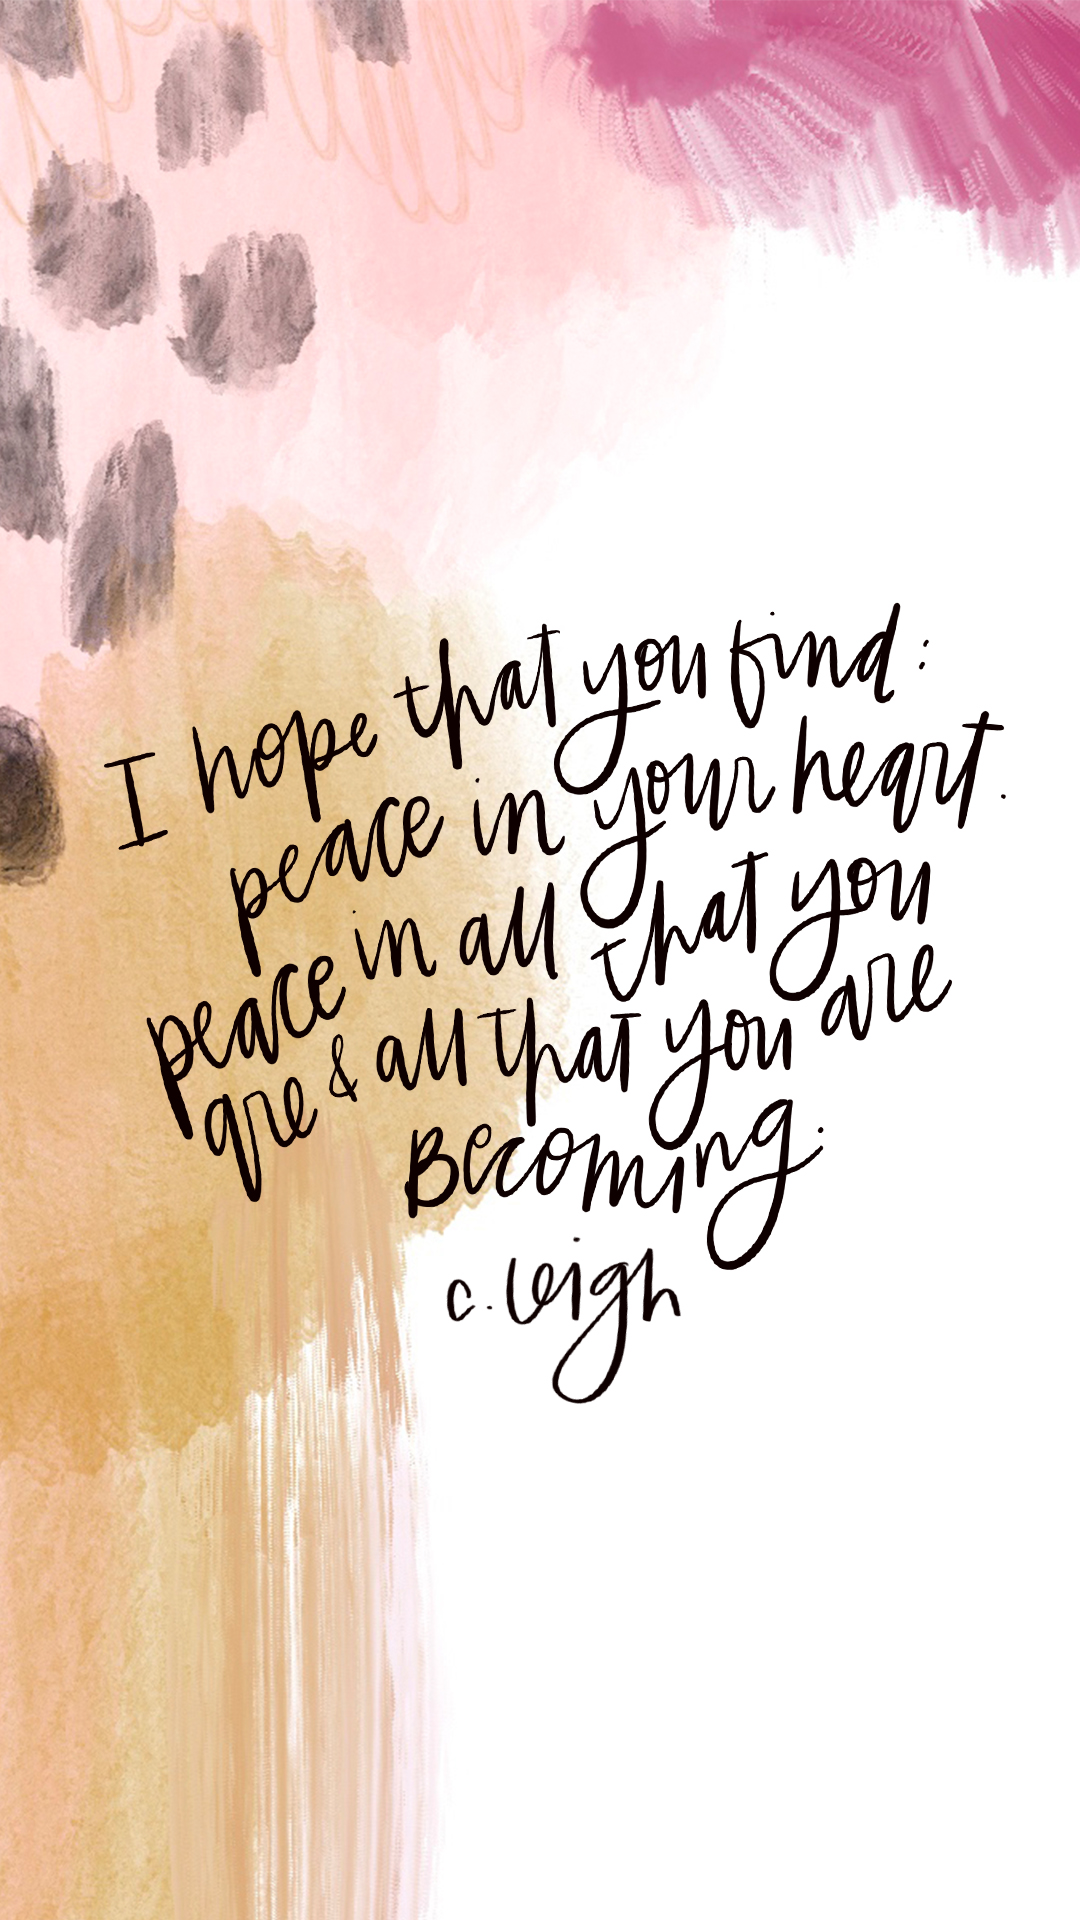 I hope that you find:
peace in your heart.
peace in all that you
are & all that you are
Becoming.
c. leigh